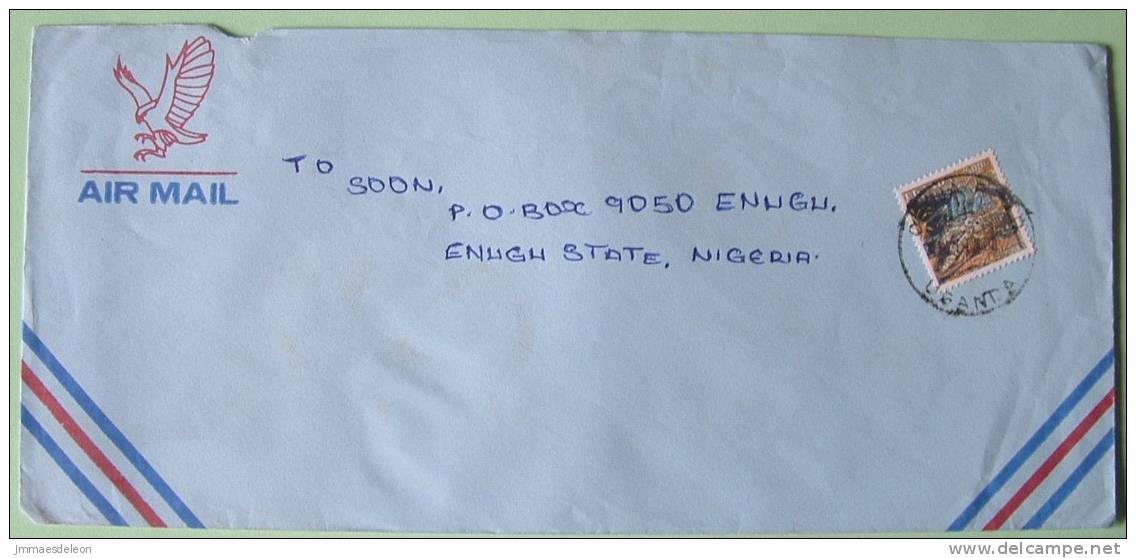 AIR MAIL
TO
SOON,
P.O.BOX 9050 ENUGU.
ENUGU STATE, NIGERIA.
UGANDA
Jmmaesdeleon
www.delcampe.net